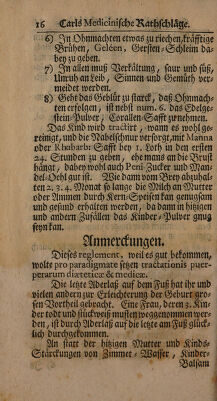 16 Carls Medicinische Rathschläge.
6) In Ohnmachten etwas zu riechen, kräfftige
Brühen, Geléen, Gersten-Schleim da-
bey zu geben.
7) In allen muß Verkältung, saur und süß,
Unruh an Leib, Sinnen und Gemüth ver-
meidet werden.
8) Geht das Geblüt zu starck, daß Ohnmach-
ten erfolgen, ist nebst num. 6. das Edelge-
stein-Pulver, Corallen-Safft zu nehmen.
Das Kind wird tractirt, wann es wohl ge-
reinigt, und die Nabelschnur versorgt, mit Manna
oder Rhabarb. Safft bey 1. Loth in den ersten
24. Stunden zu geben, ehe mans an die Brust
hängt, dabey wohl auch Peni-Zucker und Man-
del-Oehl gut ist. Wie dann vom Brey abzuhal-
ten 2. 3. 4. Monat so lange die Milch an Mutter
oder Ammen durch Kern-Speisen kan genugsam
und gesund erhalten werden, da dann in hitzigen
und andern Zufällen das Kinder-Pulver gnug
seyn kan.
Anmerckungen.
Dieses reglement, weil es gut bekommen,
wolte pro paradigmate setzen tractationis puer-
perarum diæteticæ & medicæ.
Die letzte Aderlaß auf dem Fuß hat ihr und
vielen andern zur Erleichterung der Geburt gros-
sen Vortheil gebracht. Eine Frau, deren 3. Kin-
der todt und stückweiß musten weggenommen wer-
den, ist durch Aderlaß auf die letzte am Fuß glück-
lich durchgekommen.
An statt der hitzigen Mutter und Kinds-
Stärckungen von Zimmet-Wasser, Kinder-
Balsam